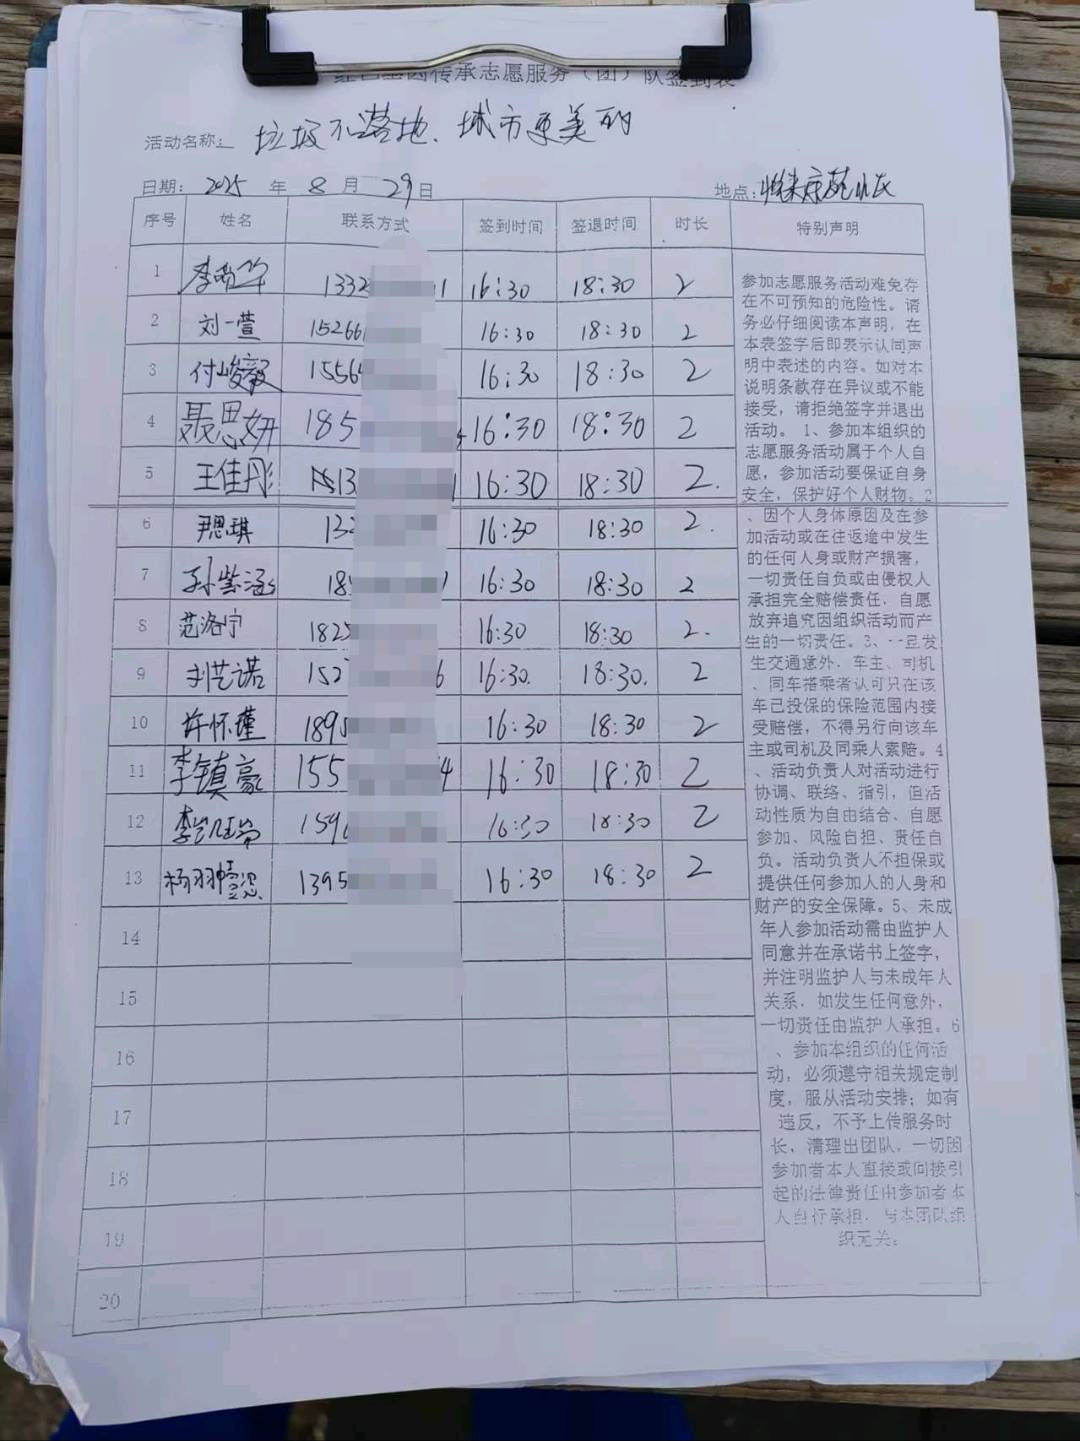 传承志愿服务（团）队签到表
活动名称： 垃圾不落地、城市更美丽
日期： 2025 年 8 月 29 日 地点：
序号 姓名 联系方式 签到时间 签退时间 时长 特别声明
1 李 133 1 16:30 18:30 2
2 刘一萱 15266 16:30 18:30 2
3 付峻毅 1556 16:30 18:30 2
4 聂思妍 185 16:30 18:30 2
5 王佳彤 13 1 16:30 18:30 2.
6 尹思琪 13 16:30 18:30 2.
7 孙紫涵 18 16:30 18:30 2
8 范洛宁 182 16:30 18:30 2.
9 刘艺诺 152 6 16:30. 18:30. 2
10 许怀瑾 1895 16:30 18:30 2
11 李镇豪 155 4 16:30 18:30 2
12 李 159 16:30 18:30 2
13 杨羽 1395 16:30 18:30 2
14
15
16
17
18
19
20
参加志愿服务活动难免存
在不可预知的危险性。请
务必仔细阅读本声明，在
本表签字后即表示认同声
明中表述的内容。如对本
说明条款存在异议或不能
接受，请拒绝签字并退出
活动。1、参加本组织的
志愿服务活动属于个人自
愿，参加活动要保证自身
安全，保护好个人财物。2
、因个人身体原因及在参
加活动或在往返途中发生
的任何人身或财产损害，
一切责任自负或由侵权人
承担完全赔偿责任，自愿
放弃追究因组织活动而产
生的一切责任。3、一旦发
生交通意外，车主、司机
、同车搭乘者认可只在该
车已投保的保险范围内接
受赔偿，不得另行向该车
主或司机及同乘人索赔。4
、活动负责人对活动进行
协调、联络、指引，但活
动性质为自由结合、自愿
参加、风险自担、责任自
负。活动负责人不担保或
提供任何参加人的人身和
财产的安全保障。5、未成
年人参加活动需由监护人
同意并在承诺书上签字，
并注明监护人与未成年人
关系，如发生任何意外，
一切责任由监护人承担。6
、参加本组织的任何活
动，必须遵守相关规定制
度，服从活动安排；如有
违反，不予上传服务时
长，清理出团队，一切因
参加者本人直接或间接引
起的法律责任由参加者本
人自行承担，与本团队组
织无关；